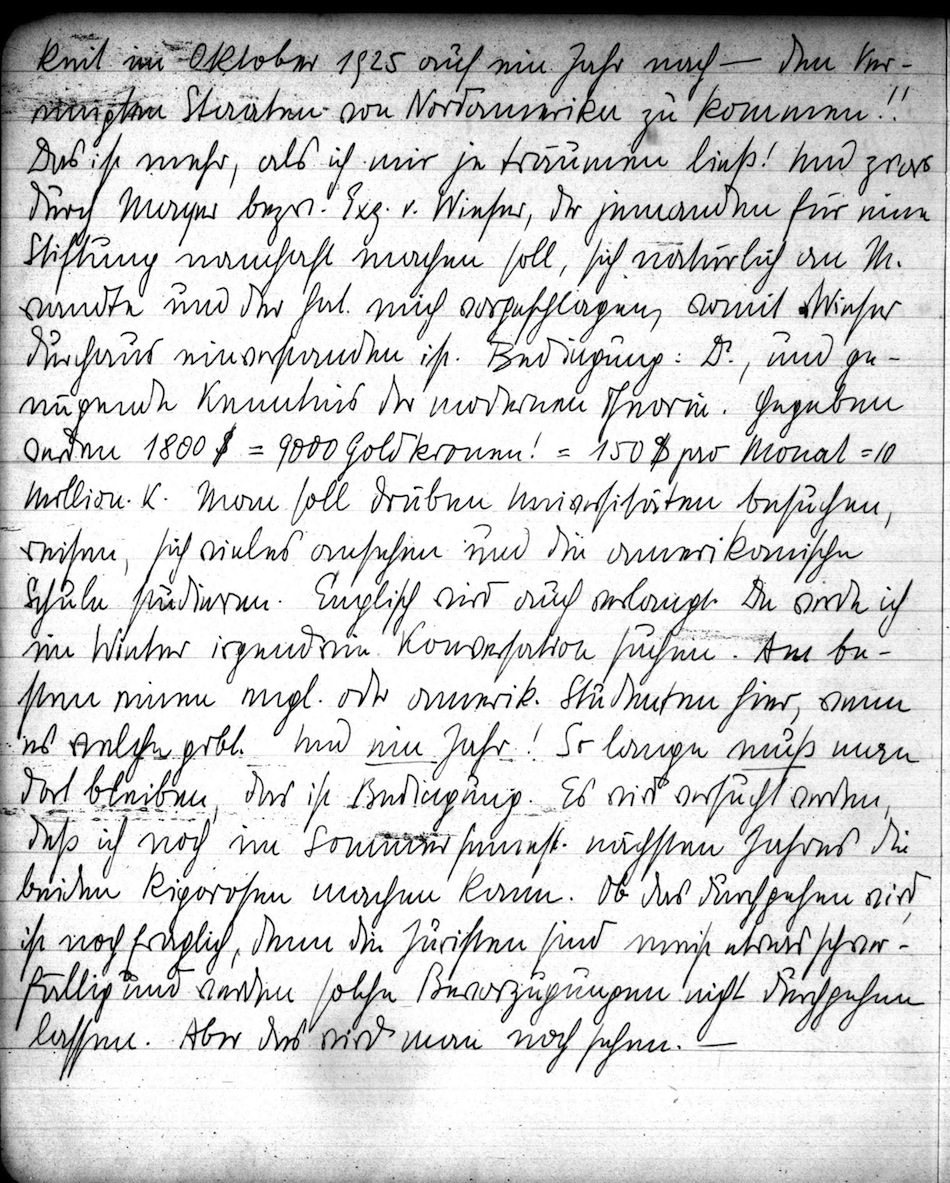 keit im Oktober 1925 auf ein Jahr nach — den Ver-
einigten Staaten von Nordamerika zu kommen!!
Das ist mehr, als ich mir je träumen ließ! Und zwar
durch Mayer bezw. Exz. v. Wieser, der jemanden für eine
Stiftung namhaft machen soll, sich natürlich an M.
wandte und der hat mich vorgeschlagen, womit Wieser
durchaus einverstanden ist. Bedingung: Dr., und ge-
nügende Kenntnis der modernen Theorie. Gegeben
werden 1800 $ = 9000 Goldkronen! = 150 $ pro Monat = 10
Million. K. Man soll drüben Universitäten besuchen,
reisen, sich vieles ansehen und die amerikanische
Schule studieren. Englisch wird auch verlangt. Da werde ich
im Winter irgendeine Konversation suchen. Am be-
sten einen engl. oder amerik. Studenten hier, wenn
es welche gibt. Und ein Jahr! So lange muß man
dort bleiben, das ist Bedingung. Es wird versucht werden,
daß ich noch im Sommersemest. nächsten Jahres die
beiden Rigorosen machen kann. Ob das durchgehen wird,
ist noch fraglich, denn die Juristen sind meist etwas schwer-
fällig und werden solche Bevorzugungen nicht durchgehen
lassen. Aber das wird man noch sehen. —